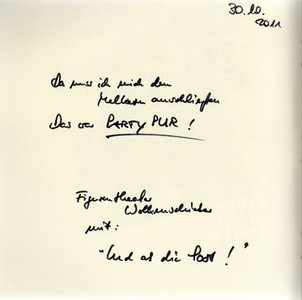 30.10.
2011
Da muss ich mich den
anschließen
Das war PARTY PUR!
Figurentheater
Wolkenschieber
mit:
"Und ab die Post!"